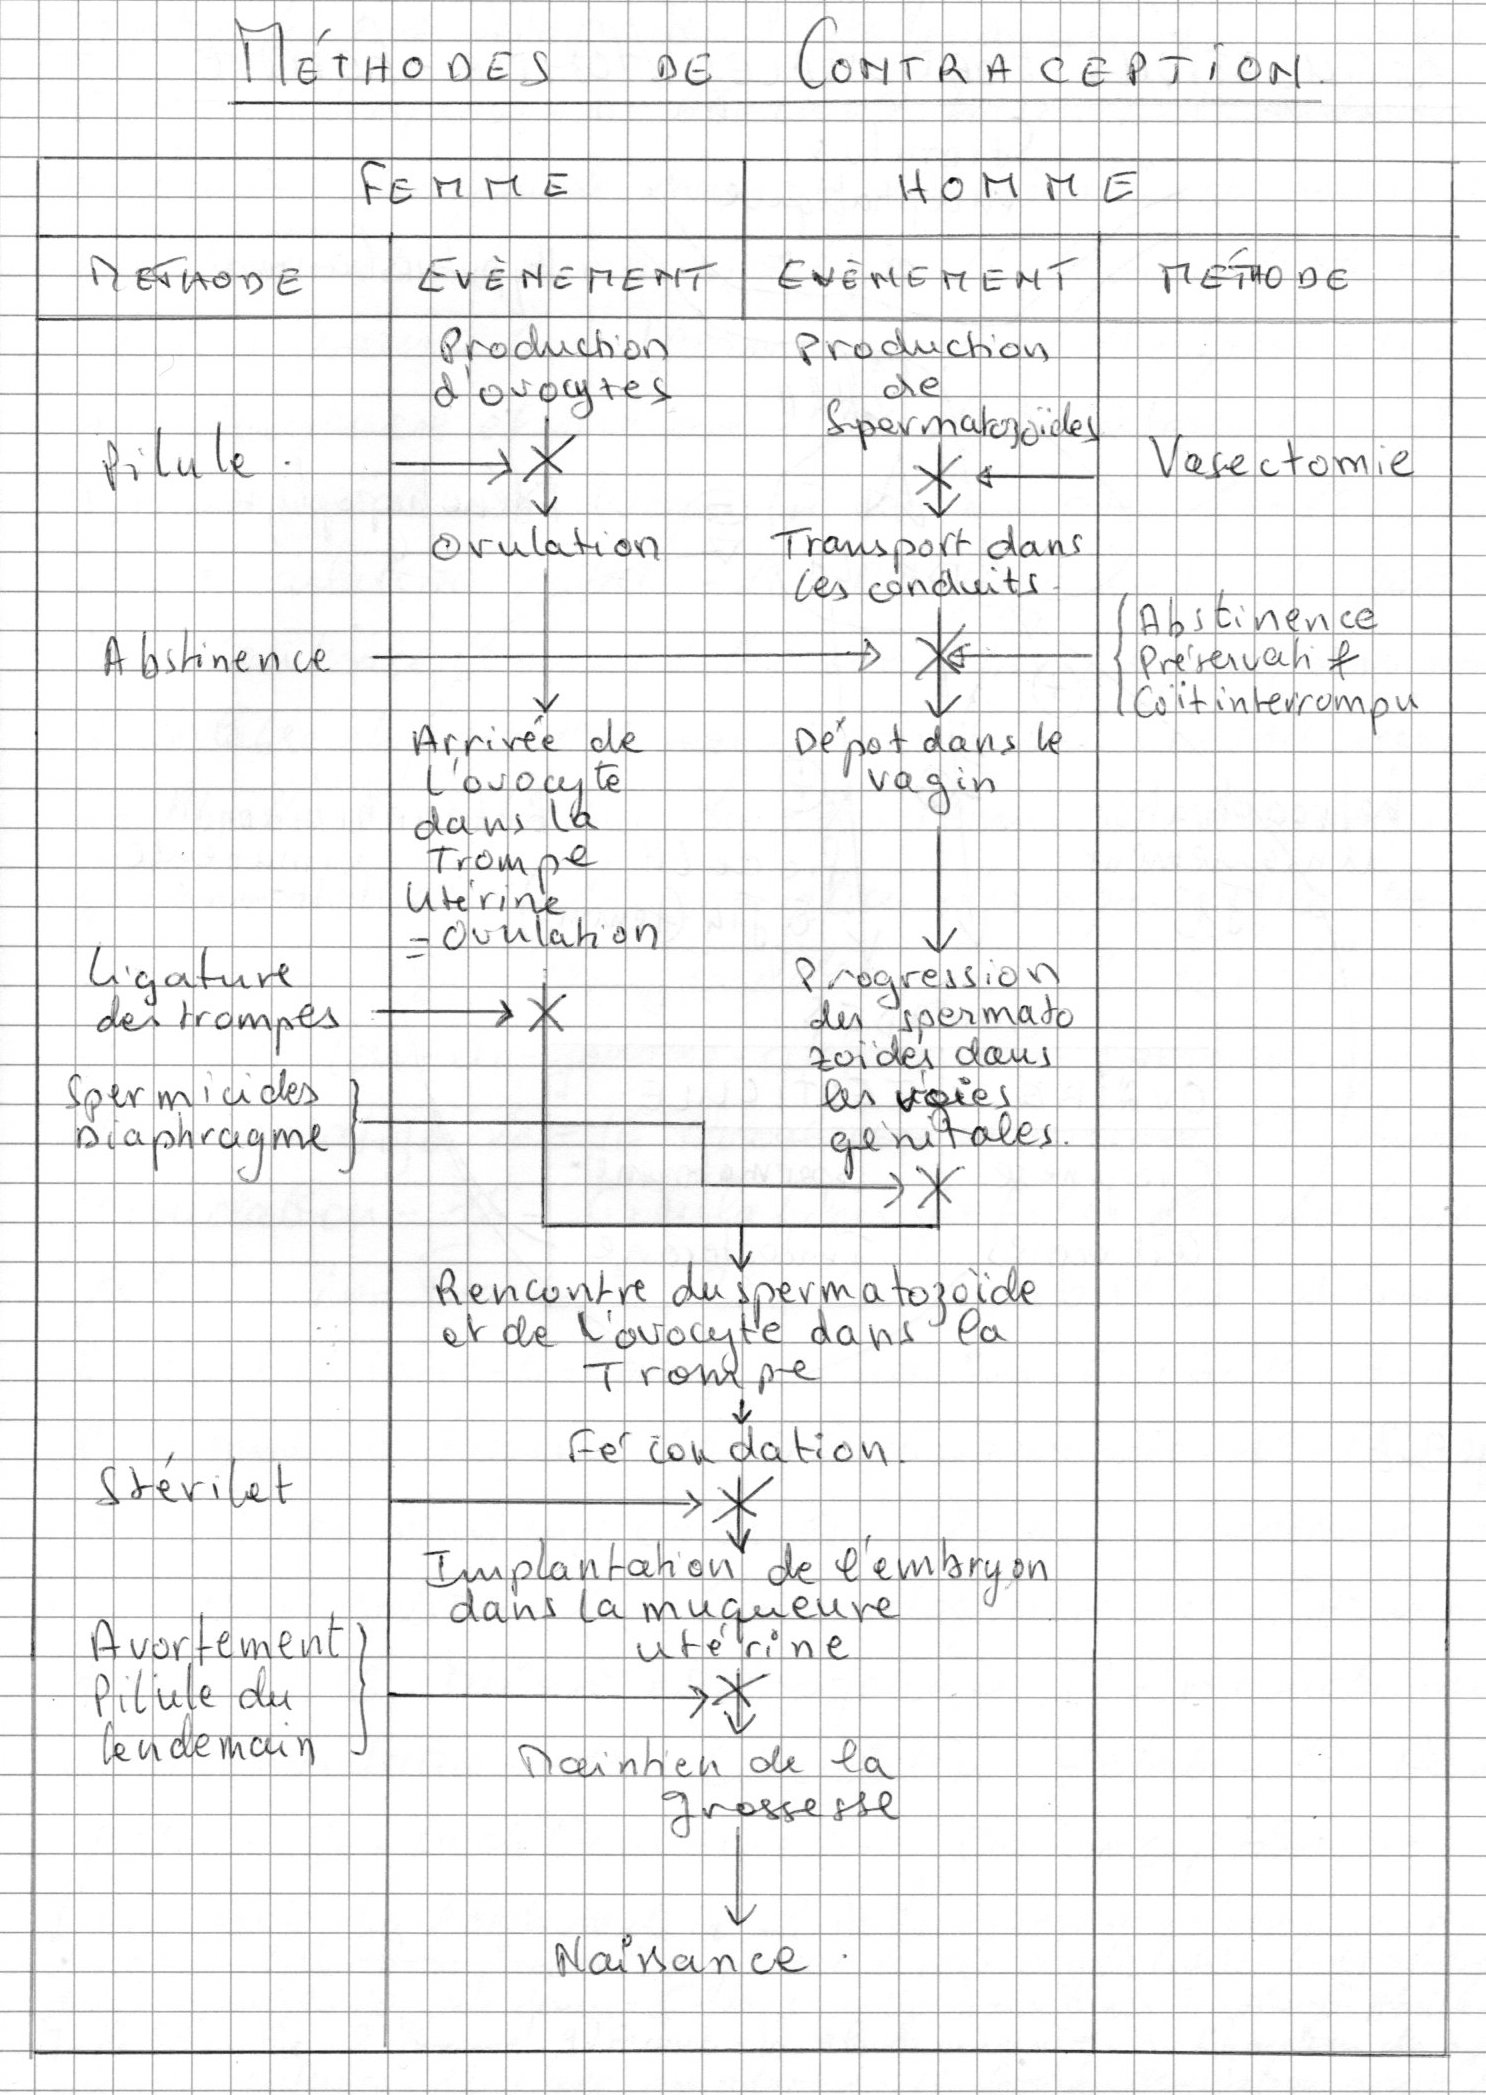 MÉTHODES DE CONTRACEPTION.
FEMME
HOMME
MÉTHODE
EVÈNEMENT
EVÈNEMENT
MÉTHODE
Production
d'ovocytes
Production
de
spermatozoïdes
Pilule.
Vasectomie
Ovulation
Transport dans
les conduits.
Abstinence
Abstinence
Préservatif
Coït interrompu
Arrivée de
l'ovocyte
dans la
Trompe
Utérine
= Ovulation
Dépot dans le
vagin
Ligature
des trompes
Progression
des spermato
zoïdes dans
les voies
génitales.
Spermicides
Diaphragme
Rencontre du spermatozoïde
et de l'ovocyte dans la
Trompe
Fécondation.
Stérilet
Implantation de l'embryon
dans la muqueure
utérine
Avortement
Pilule du
lendemain
Maintien de la
grossesse
Naissance.